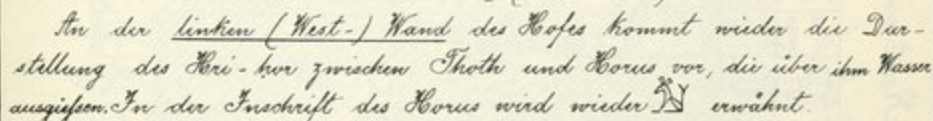 An der linken (West-) Wand des Hofes kommt wieder die Dar-
stellung des Hri-hor zwischen Thoth und Horus vor, die über ihm Wasser
ausgießen. In der Inschrift des Horus wird wieder erwähnt.